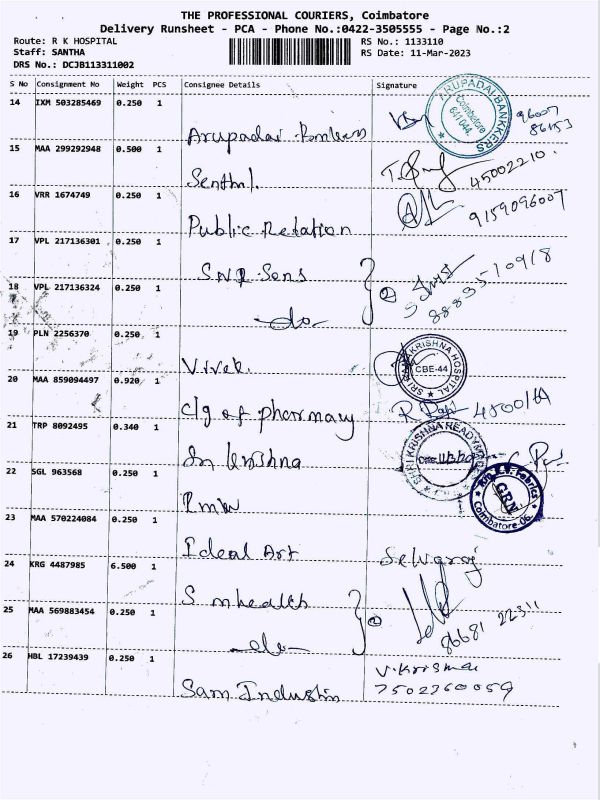 THE PROFESSIONAL COURIERS, Coimbatore
Delivery Runsheet - PCA - Phone No.:0422-3505555 - Page No.:2
Route: R K HOSPITAL RS No.: 1133110
Staff: SANTHA RS Date: 11-Mar-2023
DRS No.: DCJB113311002
S No Consignment No Weight PCS Consignee Details Signature
14 IXM 503285469 0.250 1
Arupadai Bankers
ARUPADAI BANKKERS Coimbatore 641044
96007
86153
15 MAA 299292948 0.500 1
Senthil.
45002210.
16 VRR 1674749 0.250 1
Public Relation
9159096007
17 VPL 217136301 0.250 1
SNR Sons
18 VPL 217136324 0.250 1
-do-
②
19 PLN 2256370 0.250 1
Vivek.
SRI RAMAKRISHNA HOSPITAL CBE-44
20 MAA 859094497 0.920 1
clg of pharmacy
21 TRP 8092495 0.340 1
Sri krishna
SHRI KRISHNA READYMADES
22 SGL 963568 0.250 1
RMW
Fabrics GRN Coimbatore-06.
23 MAA 570224084 0.250 1
Ideal Art Selvaraj
24 KRG 4487985 6.500 1
S mhealth
25 MAA 569883454 0.250 1
-do-
②
86681 22311
26 HBL 17239439 0.250 1
V. Krishna
Sam Industries 7502360059